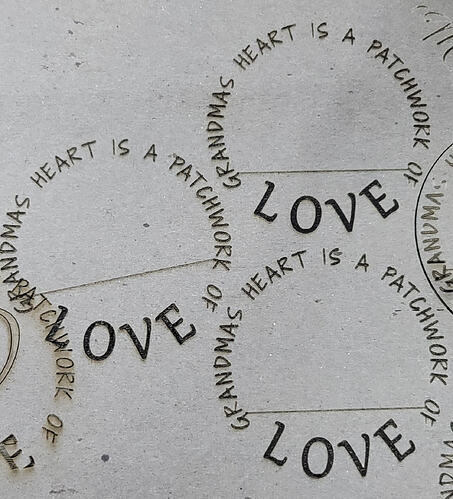 GRANDMAS HEART IS A PATCHWORK OF
LOVE
GRANDMAS HEART IS A PATCHWORK OF
LOVE
GRANDMAS HEART IS A PATCHWORK OF
LOVE
PATCHWORK OF
E
GRANDMA